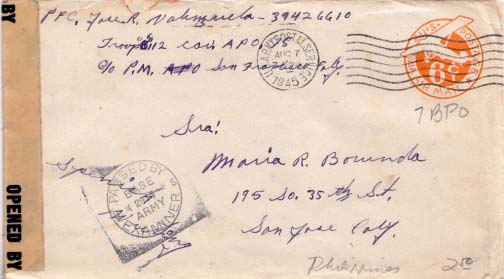 PFC. Jose R. Valenzuela - 39426610
Troop 112 Cav. APO
c/o P.M. APO San Francisco Calif.
U.S. ARMY POSTAL SERVICE
AUG 7
1945
U.S. POSTAGE
6¢
VIA AIR MAIL
7 BPO
Sra:
Maria R. Borunda
195 So. 35th St.
San Jose Calif.
PASSED BY
BASE
ARMY
EXAMINER
OPENED BY
BY
Philippines
2.50